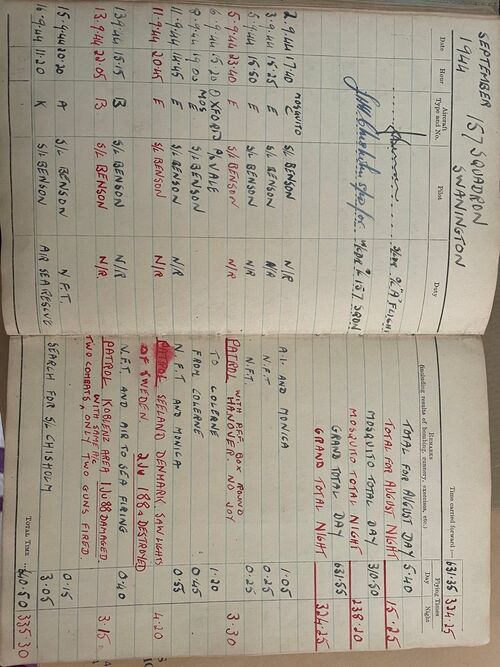 SEPTEMBER 157 SQUADRON
1944 SWANNINGTON
Time carried forward :— 631·35 324·25
Date Hour Aircraft Type and No. Pilot Duty REMARKS (Including results of bombing, gunnery, exercises, etc.) Flying Times Day Night
TOTAL FOR AUGUST DAY 5·40
TOTAL FOR AUGUST NIGHT 15·25
%c "A" FLIGHT
MOSQUITO TOTAL DAY 310·50
MOSQUITO TOTAL NIGHT 238·20
157 SQDN
GRAND TOTAL DAY 631·55
GRAND TOTAL NIGHT 324·25
2.9.44 17.40 MOSQUITO E S/L BENSON N/R A.I. AND MONICA 1·05
3.9.44 15.25 E S/L BENSON N/R N.F.T 0·25
5.9.44 15.50 E S/L BENSON N.F.T. 0·25
5.9.44 23.40 E S/L BENSON N/R PATROL WITH REF. BOX ROUND HANOVER. NO JOY 3·30
6.9.44 15.20 OXFORD P/O VALE TO COLERNE 1·20
8.9.44 19.00 MOS E S/L BENSON FROM COLERNE 0·45
11.9.44 14.45 E S/L BENSON N/R N.F.T AND MONICA 0·55
11.9.44 20.45 E S/L BENSON N/R PATROL SEELAND DENMARK SAW LIGHTS OF SWEDEN. 2 JU 188s DESTROYED 4·20
13.9.44 15.15 B S/L BENSON N/R N.F.T AND AIR TO SEA FIRING 0·40
13.9.44 22.05 B S/L BENSON N/R PATROL KOBLENZ AREA 1 JU 88 DAMAGED
TWO COMBATS WITH SAME A/C ONLY TWO GUNS FIRED 3·15
15.9.44 20.20 A S/L BENSON N.F.T. 0·15
16.9.44 11.20 K S/L BENSON AIR SEA RESCUE SEARCH FOR S/L CHISHOLM 3·05
TOTAL TIME 640·50 335·30